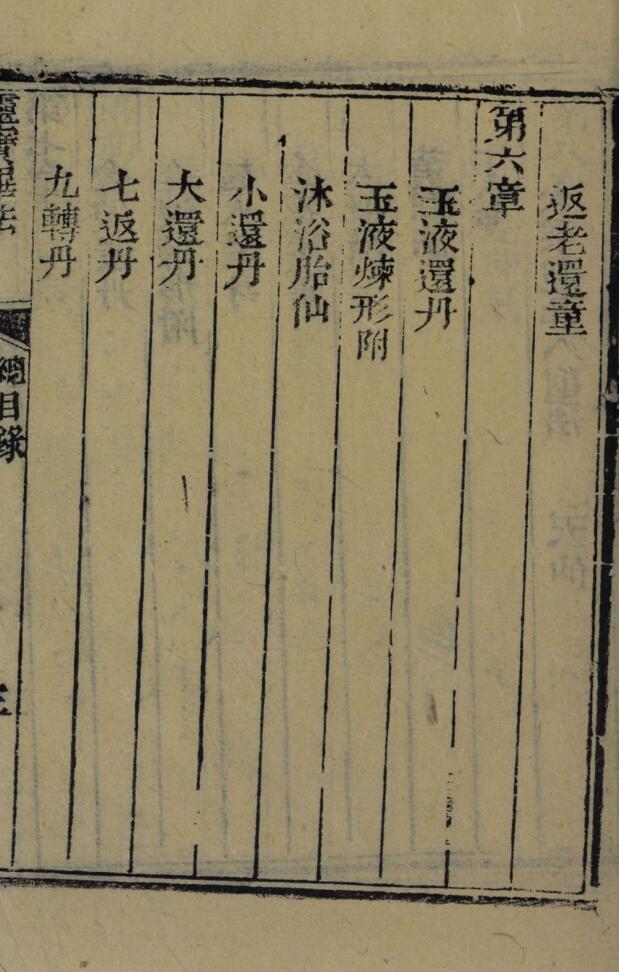 返老還童
第六章
玉液還丹
玉液煉形附
沐浴胎仙
小還丹
大還丹
七返丹
九轉丹
靈寶畢法
總目錄
三